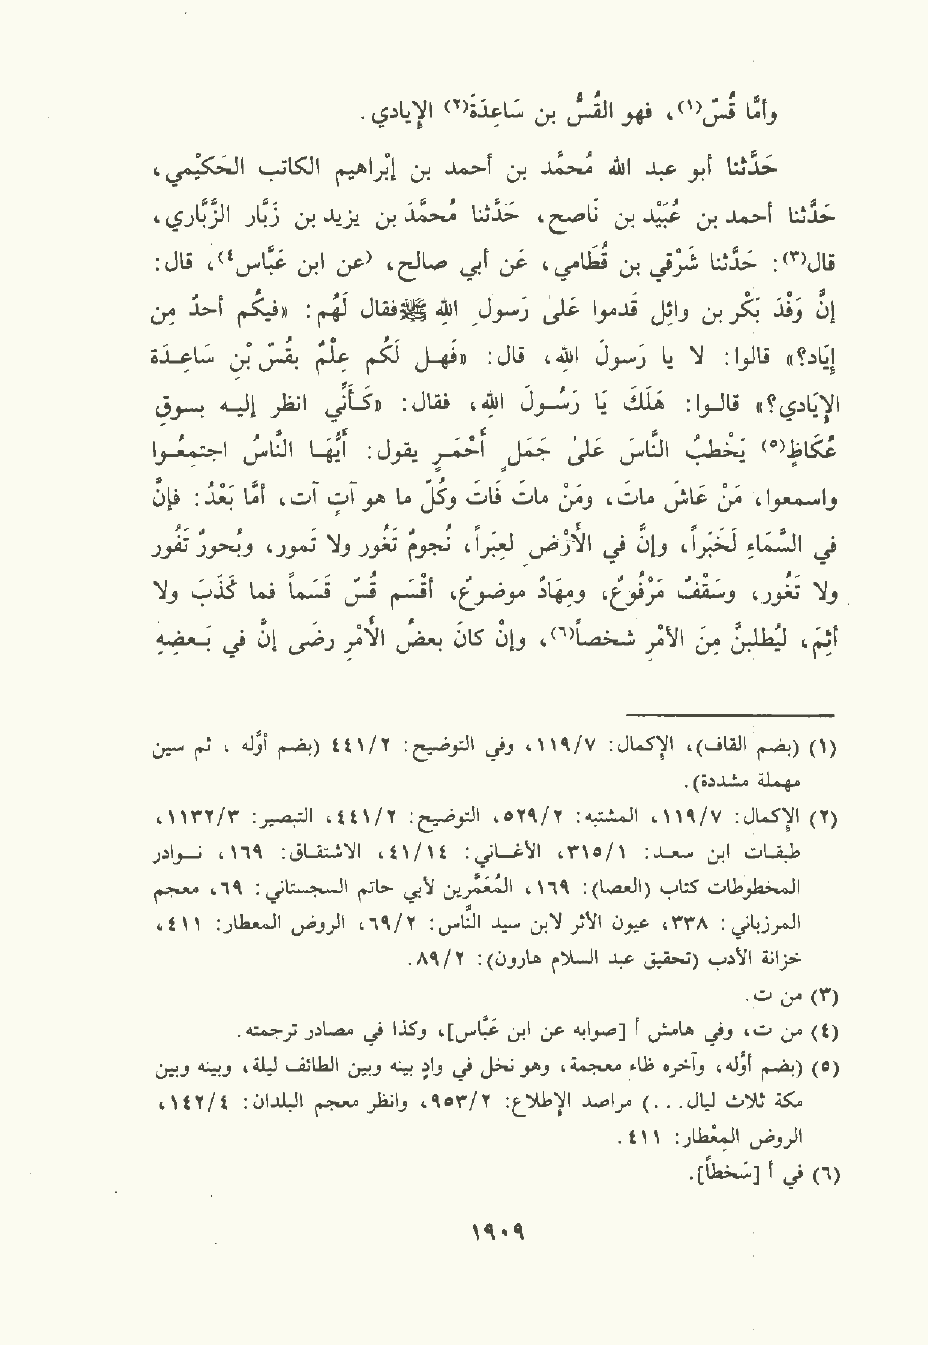 وأمَّا قُسّ(١)، فهو القُسُّ بن سَاعِدَة(٢) الإيادي.
حَدَّثنا أبو عبد الله مُحمَّد بن أحمد بن إبْراهيم الكاتب الحَكيْمي،
حَدَّثنا أحمد بن عُبَيْد بن نَاصح، حَدَّثنا مُحمَّد بن يزيد بن زبَّار الزَّبَّاري،
قال(٣): حَدَّثنا شَرْقي بن قُطَامي، عَن أبي صالح، <عن ابن عَبَّاس>٤، قال:
إنَّ وَفْدَ بَكْر بن وائِل قدموا عَلَى رَسولِ الله ﷺ فقال لَهُم: «أفيكُم أحدٌ مِن
إيَاد؟» قالوا: لا يا رَسولَ الله، قال: «فَهل لَكُم عِلْمٌ بقُسّ بنْ سَاعِدَة
الإيَادي؟» قالوا: هَلَكَ يَا رَسُولَ الله، فقال: «كَأنِّي أنظر إليه بسوق
عُكَاظٍ(٥) يَخْطبُ النَّاسَ عَلَى جَمَلٍ أحْمَرٍ يقول: أيُّهَا النَّاسُ اجتمعُوا
واسمعوا، مَنْ عَاشَ مات، ومَنْ ماتَ فَاتَ وكُلّ ما هو آتٍ آت، أمَّا بَعْدُ: فإنَّ
في السَّمَاءِ لَخَبَراً، وإنَّ في الأَرْضِ لعِبَراً، نُجومٌ تَغُور ولا تمور، وبُحورٌ تَفُور
ولا تَغُور، وسَقْفٌ مَرْفُوعٌ، ومِهَادٌ موضوعٌ، أقْسَم قُسّ قَسَماً فما كَذَب ولا
أثِمَ، لُيطلبنَّ مِنَ الأمْرِ شخصاً(٦)، وإنْ كانَ بعضُ الأمْرِ رضَى إنَّ في بَعضِهِ
(١) (بضم القاف)، الإكمال: ١١٩/٧، وفي التوضيح: ٤٤١/٢ (بضم أوَّله ، ثم سين
مهملة مشددة).
(٢) الإكمال: ١١٩/٧، المشتبه: ٥٢٩/٢، التوضيح: ٤٤١/٢، التبصير: ١١٣٢/٣،
طبقات ابن سعد: ٣١٥/١، الأغاني: ٤١/١٤، الاشتقاق: ١٦٩، نوادر
المخطوطات كتاب (العصا): ١٦٩، المُعَمَّرين لأبي حاتم السجستاني: ٦٩، معجم
المرزباني: ٣٣٨، عيون الأثر لابن سيد النَّاس: ٦٩/٢، الروض المعطار: ٤١١،
خزانة الأدب (تحقيق عبد السلام هارون): ٨٩/٢.
(٣) من ت.
(٤) من ت، وفي هامش أ [صوابه عن ابن عَبَّاس]، وكذا في مصادر ترجمته.
(٥) (بضم أوَّله، وآخره ظاء معجمة، وهو نخل في وادٍ بينه وبين الطائف ليلة، وبينه وبين
مكة ثلاث ليال...) مراصد الإطلاع: ٩٥٣/٢، وانظر معجم البلدان: ١٤٢/٤،
الروض المعْطار: ٤١١.
(٦) في أ [سَخطاً].
١٩٠٩